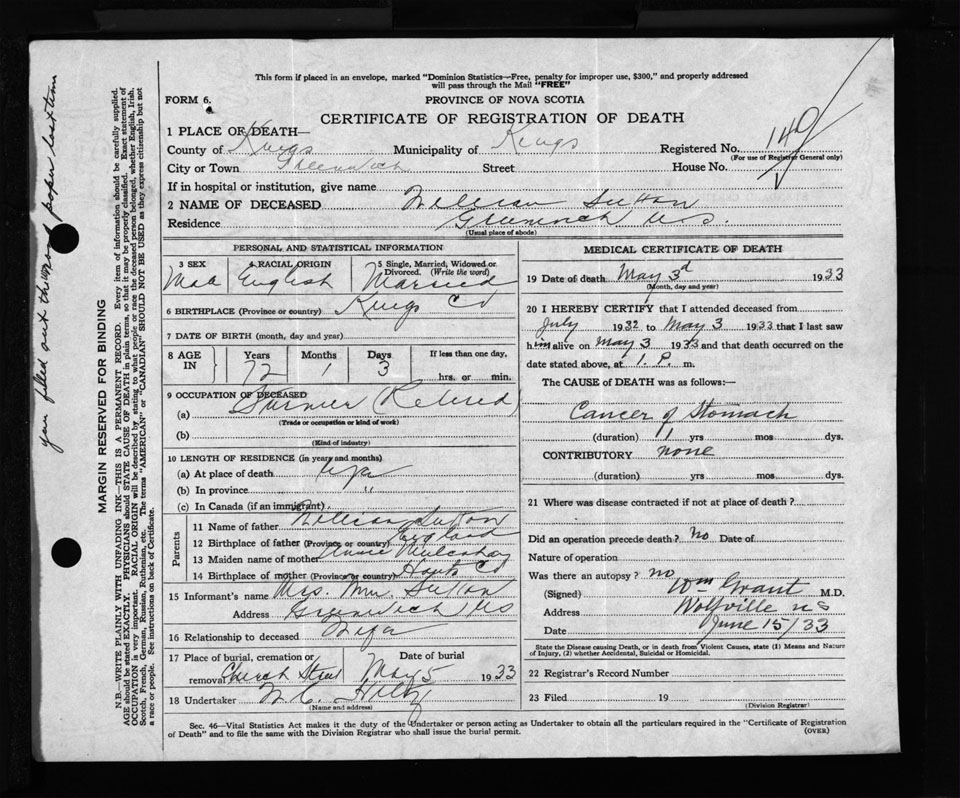 This form if placed in an envelope, marked "Dominion Statistics—Free, penalty for improper use, $300," and properly addressed
will pass through the Mail "FREE"
FORM 6.
PROVINCE OF NOVA SCOTIA
CERTIFICATE OF REGISTRATION OF DEATH
1 PLACE OF DEATH—
County of Kings Municipality of Kings Registered No. 149
(For use of Registrar General only)
City or Town Greenwich Street House No.
If in hospital or institution, give name
2 NAME OF DECEASED William Sutton
Residence Greenwich N.S.
(Usual place of abode)
PERSONAL AND STATISTICAL INFORMATION
3 SEX 4 RACIAL ORIGIN 5 Single, Married, Widowed or
Divorced. (Write the word)
Male English Married
6 BIRTHPLACE (Province or country) Kings Co
7 DATE OF BIRTH (month, day and year)
8 AGE IN Years Months Days If less than one day,
72 1 3 hrs. or min.
9 OCCUPATION OF DECEASED
(a) Farmer (Retired)
(Trade or occupation or kind of work)
(b)
(Kind of industry)
10 LENGTH OF RESIDENCE (in years and months)
(a) At place of death life
(b) In province "
(c) In Canada (if an immigrant)
Parents
11 Name of father William Sutton
12 Birthplace of father (Province or country) England
13 Maiden name of mother
14 Birthplace of mother (Province or country) Hants Co
15 Informant's name Mrs. Wm Sutton
Address Greenwich NS
16 Relationship to deceased Wife
17 Place of burial, cremation or removal Church Street Date of burial May 5 1933
18 Undertaker
(Name and address)
MEDICAL CERTIFICATE OF DEATH
19 Date of death May 3d 1933
(Month, day and year)
20 I HEREBY CERTIFY that I attended deceased from
July 1932 to May 3 1933 that I last saw
him alive on May 3 1933 and that death occurred on the
date stated above, at 1 P. m.
The CAUSE of DEATH was as follows:
Cancer of Stomach
(duration) 1 yrs mos dys.
CONTRIBUTORY none
(duration) yrs mos dys.
21 Where was disease contracted if not at place of death?
Did an operation precede death? no Date of
Nature of operation
Was there an autopsy? no
(Signed) Wm Grant M.D.
Address Wolfville NS
Date June 15/33
State the Disease causing Death, or in death from Violent Causes, state (1) Means and Nature
of Injury, (2) whether Accidental, Suicidal or Homicidal.
22 Registrar's Record Number
23 Filed 19
(Division Registrar)
Sec. 46—Vital Statistics Act makes it the duty of the Undertaker or person acting as Undertaker to obtain all the particulars required in the "Certificate of Registration
of Death" and to file the same with the Division Registrar who shall issue the burial permit.
(OVER)
you filled out the wrong paper last time
MARGIN RESERVED FOR BINDING
N.B.—WRITE PLAINLY WITH UNFADING INK—THIS IS A PERMANENT RECORD. Every item of information should be carefully supplied.
AGE should be stated EXACTLY. PHYSICIANS should STATE CAUSE OF DEATH in plain terms, so that it may be properly classified. Exact statement of
OCCUPATION is very important. RACIAL ORIGIN will be described by stating to what people or race the deceased person belonged, whether English, Irish,
Scotch, French, German, Russian, Ruthenian, etc. The terms "AMERICAN" or "CANADIAN" SHOULD NOT BE USED as they express citizenship but not
a race or people. See instructions on back of Certificate.